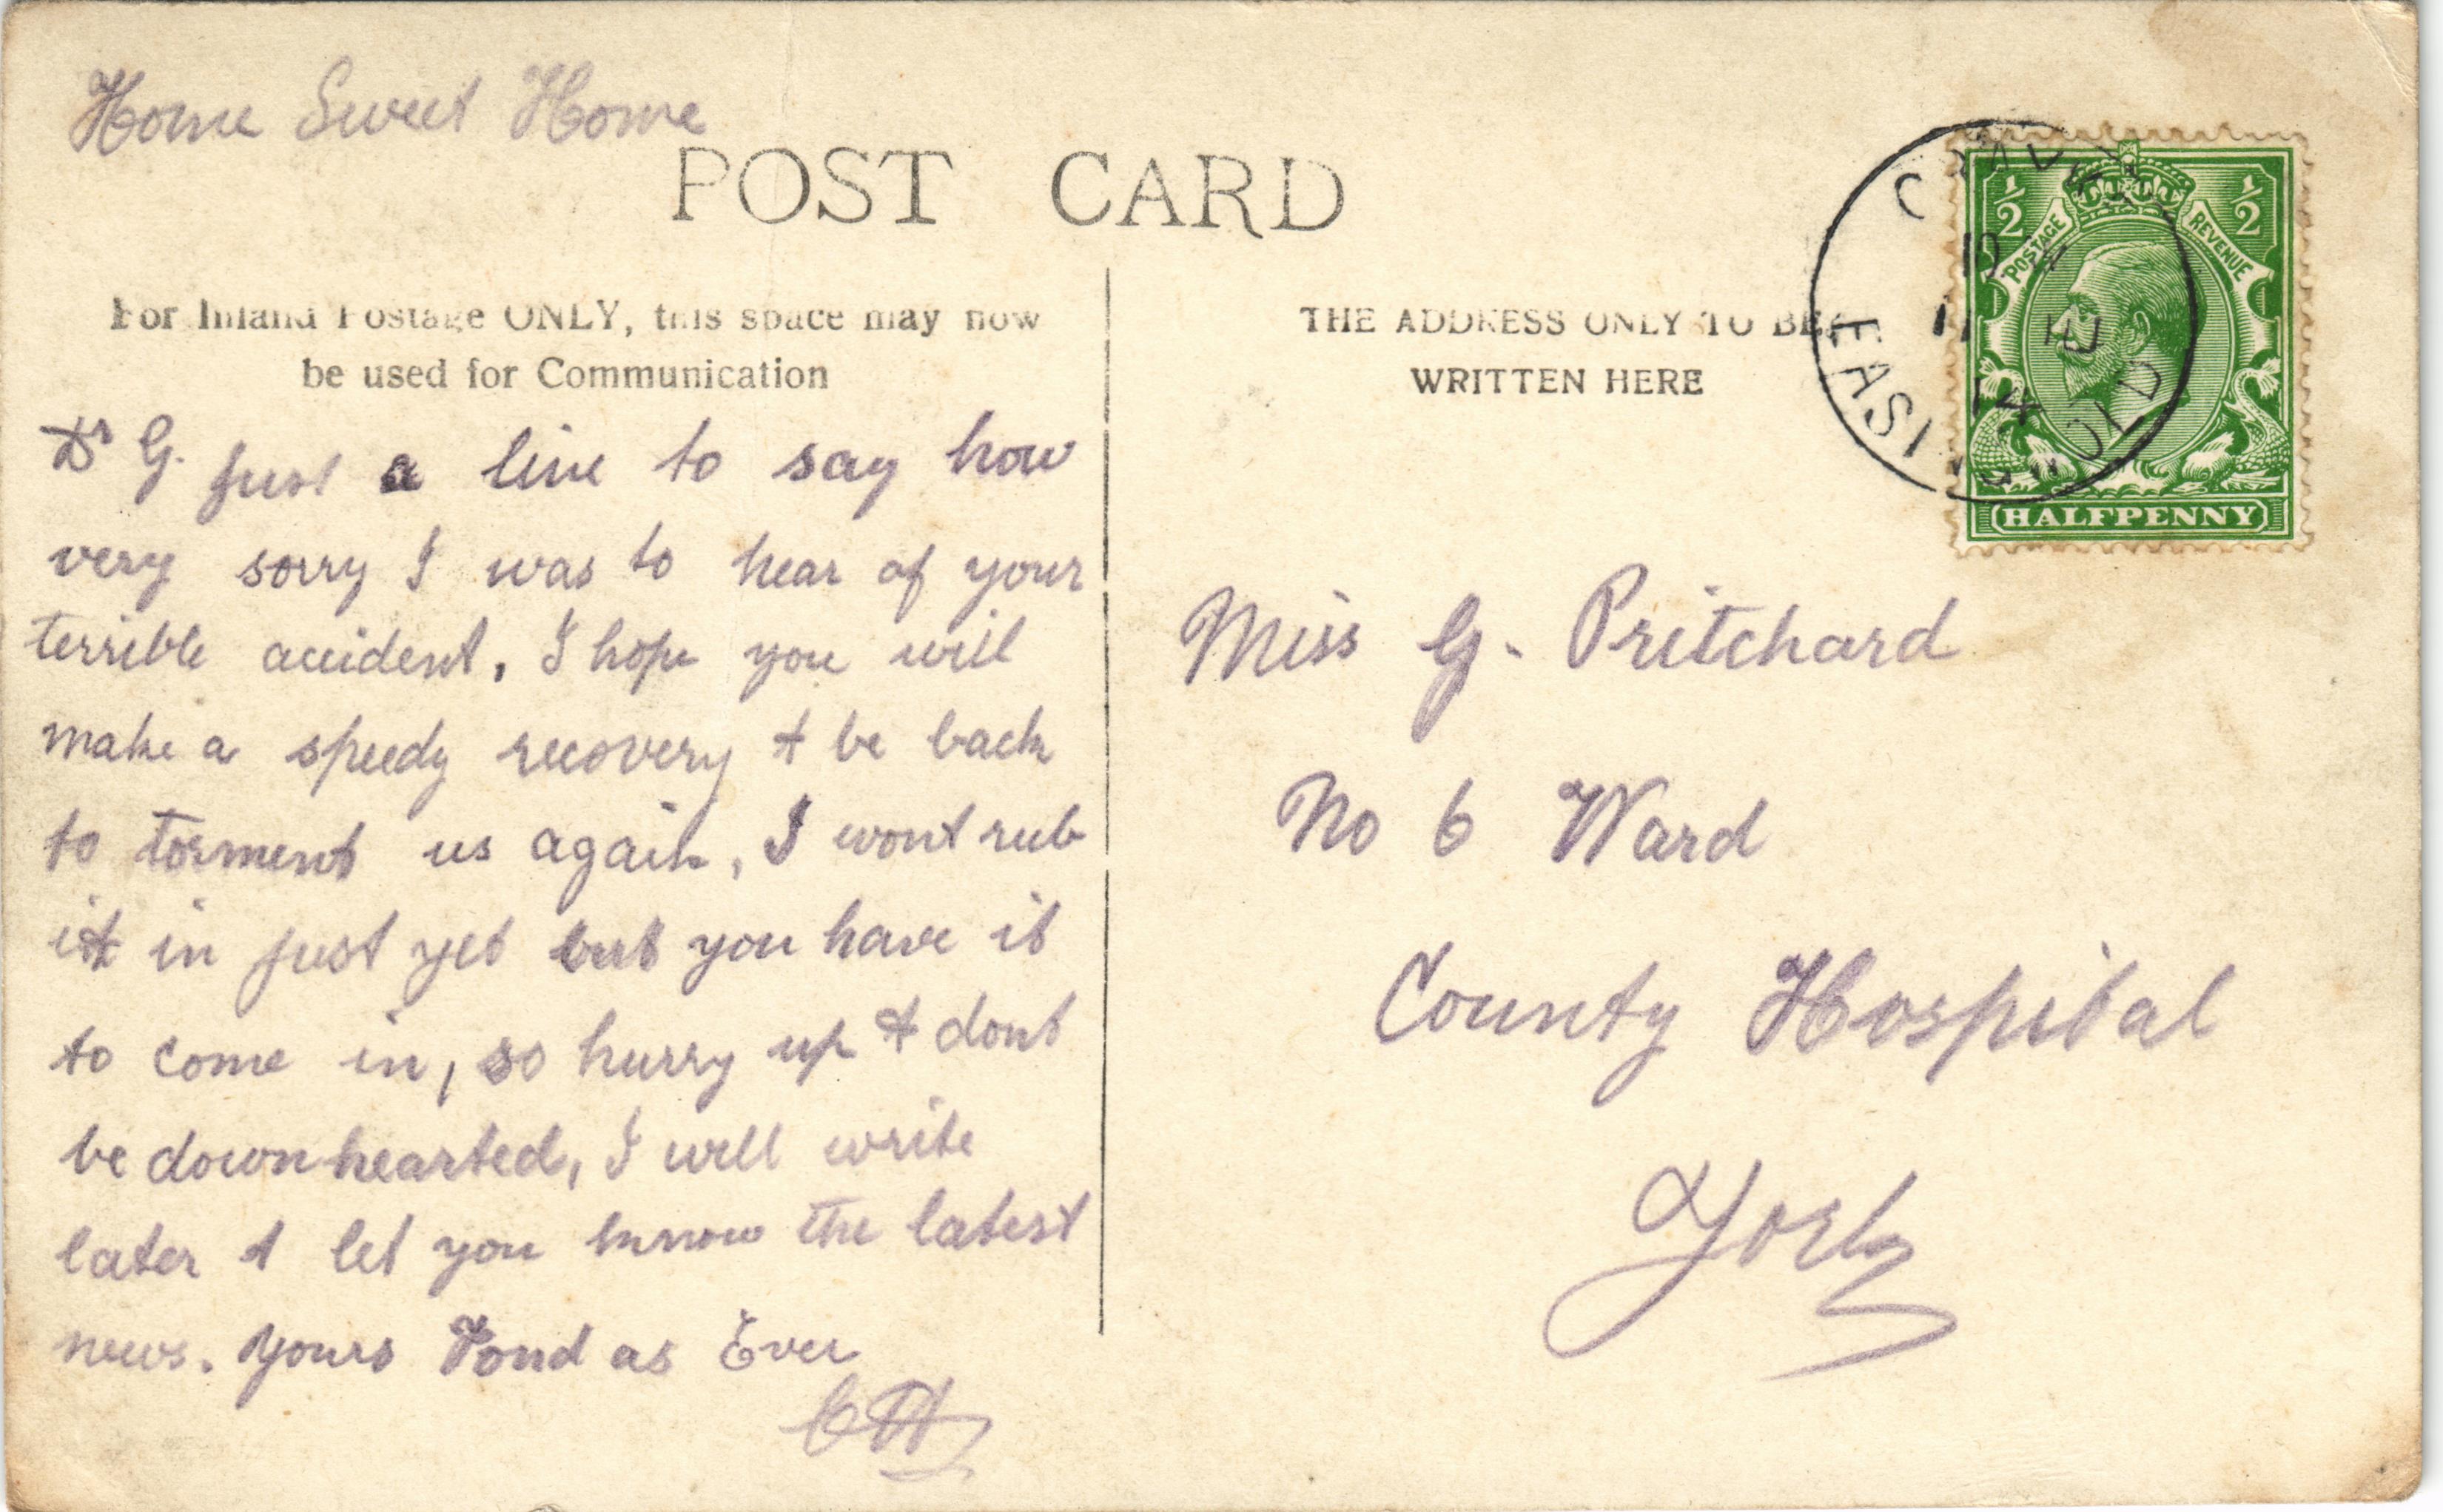 Home Sweet Home
POST CARD
For Inland Postage ONLY, this space may now
be used for Communication
THE ADDRESS ONLY TO BE
WRITTEN HERE
Dr G. Just a line to say how
very sorry I was to hear of your
terrible accident, I hope you will
make a speedy recovery & be back
to torment us again, I wont rub
it in just yet but you have it
to come in, so hurry up & dont
be down-hearted, I will write
later & let you know the latest
news. Yours Fond as Ever
Miss G. Pritchard
No 6 Ward
County Hospital
York
EASINGWOLD
11 JU
14
1/2 1/2
POSTAGE REVENUE
HALFPENNY